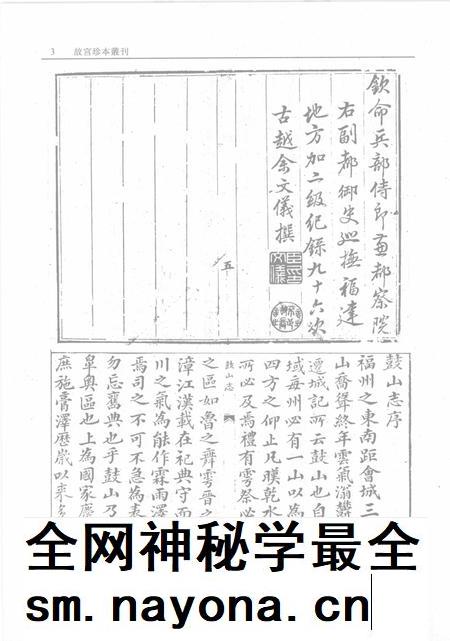 3 故宮珍本叢刊
欽命兵部侍郎兼都察院
右副都御史巡撫福建
地方加二級紀錄九十六次
古越余文儀撰
五
鼓山志序
福州之東南距會城三
山喬聳終年雲氣滃欝
邊城記所云鼓山也自
域每州必有一山以為
四方之仰止凡膜乾水
所必及焉禮有雩祭必
鼓山志
之區如魯之舞雩晉之
漳江漢載在祀典守而
川之氣為能作霖雨澤
焉司之不可不急為表
勿忘舊典也乎鼓山乃
皐奧區也上為國家慶
庶施膏澤歷歲以來多
全网神秘学最全
sm.nayona.cn